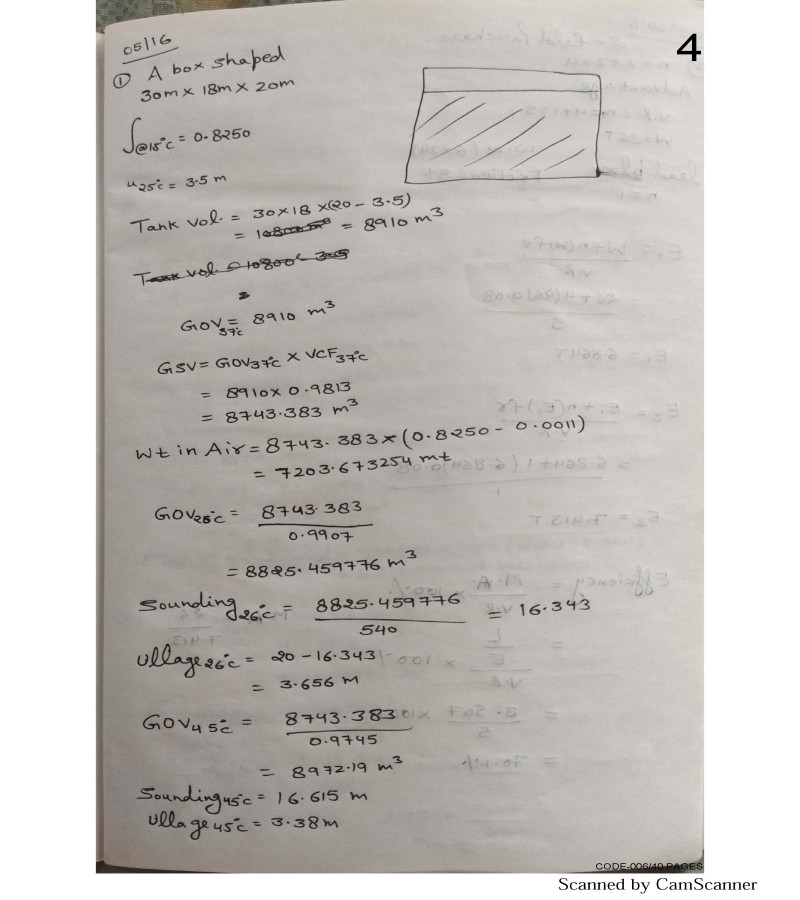 4
05/16
① A box shaped
30m × 18m × 20m
∫@15°c = 0.8250
u25°c = 3.5 m
Tank vol. = 30×18 ×(20 - 3.5)
= = 8910 m³
Tank vol = 10800 -
GOV37°c = 8910 m³
GSV = GOV37°c × VCF37°c
= 8910 × 0.9813
= 8743.383 m³
Wt in Air = 8743.383 × (0.8250 - 0.0011)
= 7203.673254 mt
GOV26°c = 8743.383
0.9907
= 8825.459776 m³
Sounding26°c = 8825.459776 = 16.343
540
Ullage26°c = 20 - 16.343
= 3.656 M
GOV45°c = 8743.383
0.9745
= 8972.19 m³
Sounding45°c = 16.615 m
Ullage45°c = 3.38m
CODE-006/40 PAGES
Scanned by CamScanner